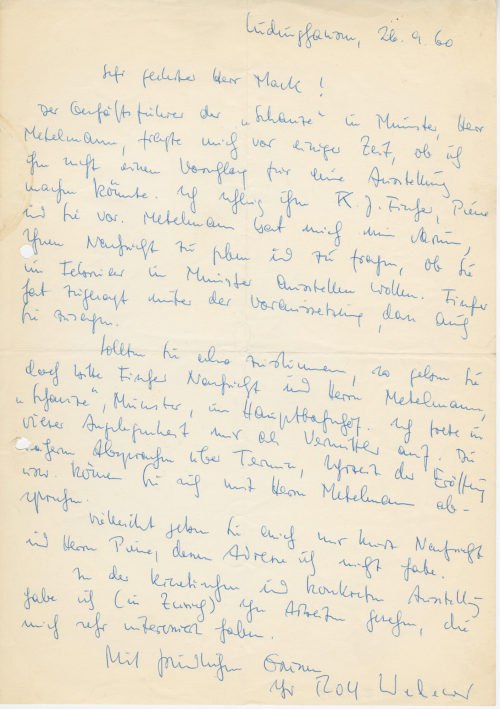 Lüdinghausen, 26.9.60
Sehr geehrter Herr Mack!
der Geschäftsführer der „Schanze" in Münster, Herr
Metelmann, fragte mich vor einiger Zeit, ob ich
ihm nicht einen Vorschlag für eine Ausstellung
machen könnte. Ich schlug ihm K. J. Fischer, Piene
und Sie vor. Metelmann bat mich nun darum,
Ihnen Nachricht zu geben und zu fragen, ob Sie
im Februar in Münster ausstellen wollen. Fischer
hat zugesagt unter der Voraussetzung, dass auch
Sie zusagen.
Sollten Sie also zustimmen, so geben Sie
doch bitte Fischer Nachricht und Herrn Metelmann,
„Schanze", Münster, im Hauptbahnhof. Ich trete in
dieser Angelegenheit nur als Vermittler auf. Die
näheren Absprachen über Termin, Uhrzeit der Eröffnung
usw. können Sie auch mit Herrn Metelmann ab-
sprechen.
Vielleicht geben Sie auch nur kurz Nachricht
und Herrn Piene, dessen Adresse ich nicht habe.
In der konkreten Ausstellung
habe ich (in Zürich) Ihre Arbeiten gesehen, die
mich sehr interessiert haben.
Mit freundlichen Grüssen
Ihr Rolf